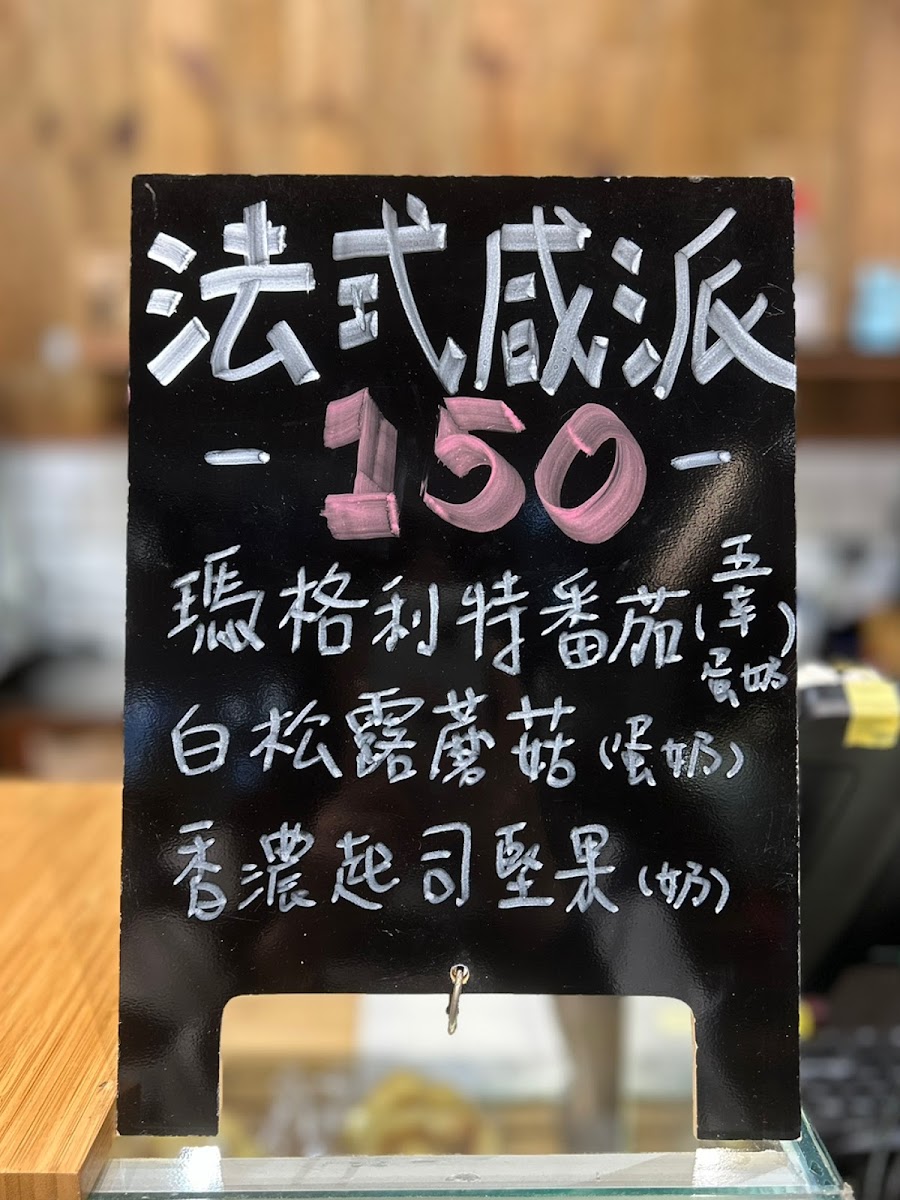 法式咸派
- 150 -
瑪格利特番茄(五辛蛋奶)
白松露蘑菇(蛋奶)
香濃起司堅果(奶)